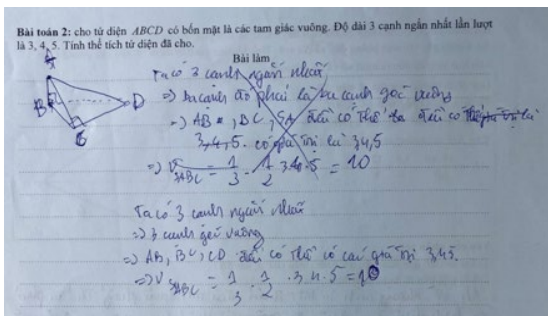 Bài toán 2: cho tứ diện ABCD có bốn mặt là các tam giác vuông. Độ dài 3 cạnh ngắn nhất lần lượt
là 3, 4, 5. Tính thể tích tứ diện đã cho.
Bài làm
A
B
C
D
Ta có 3 cạnh ngắn nhất
=> ba cạnh đó phải là ba cạnh góc vuông
=> AB, BC, đều có thể
3,4,5. có giá trị là 3,4,5
=> V SABC = 1/3 . 1/2 3.4.5 = 10
Ta có 3 cạnh ngắn nhất
=> 3 cạnh góc vuông
=> AB, BC, CD đều có thể có các giá trị 3,4,5.
=> V SABC = 1/3 . 1/2 . 3.4.5 = 10